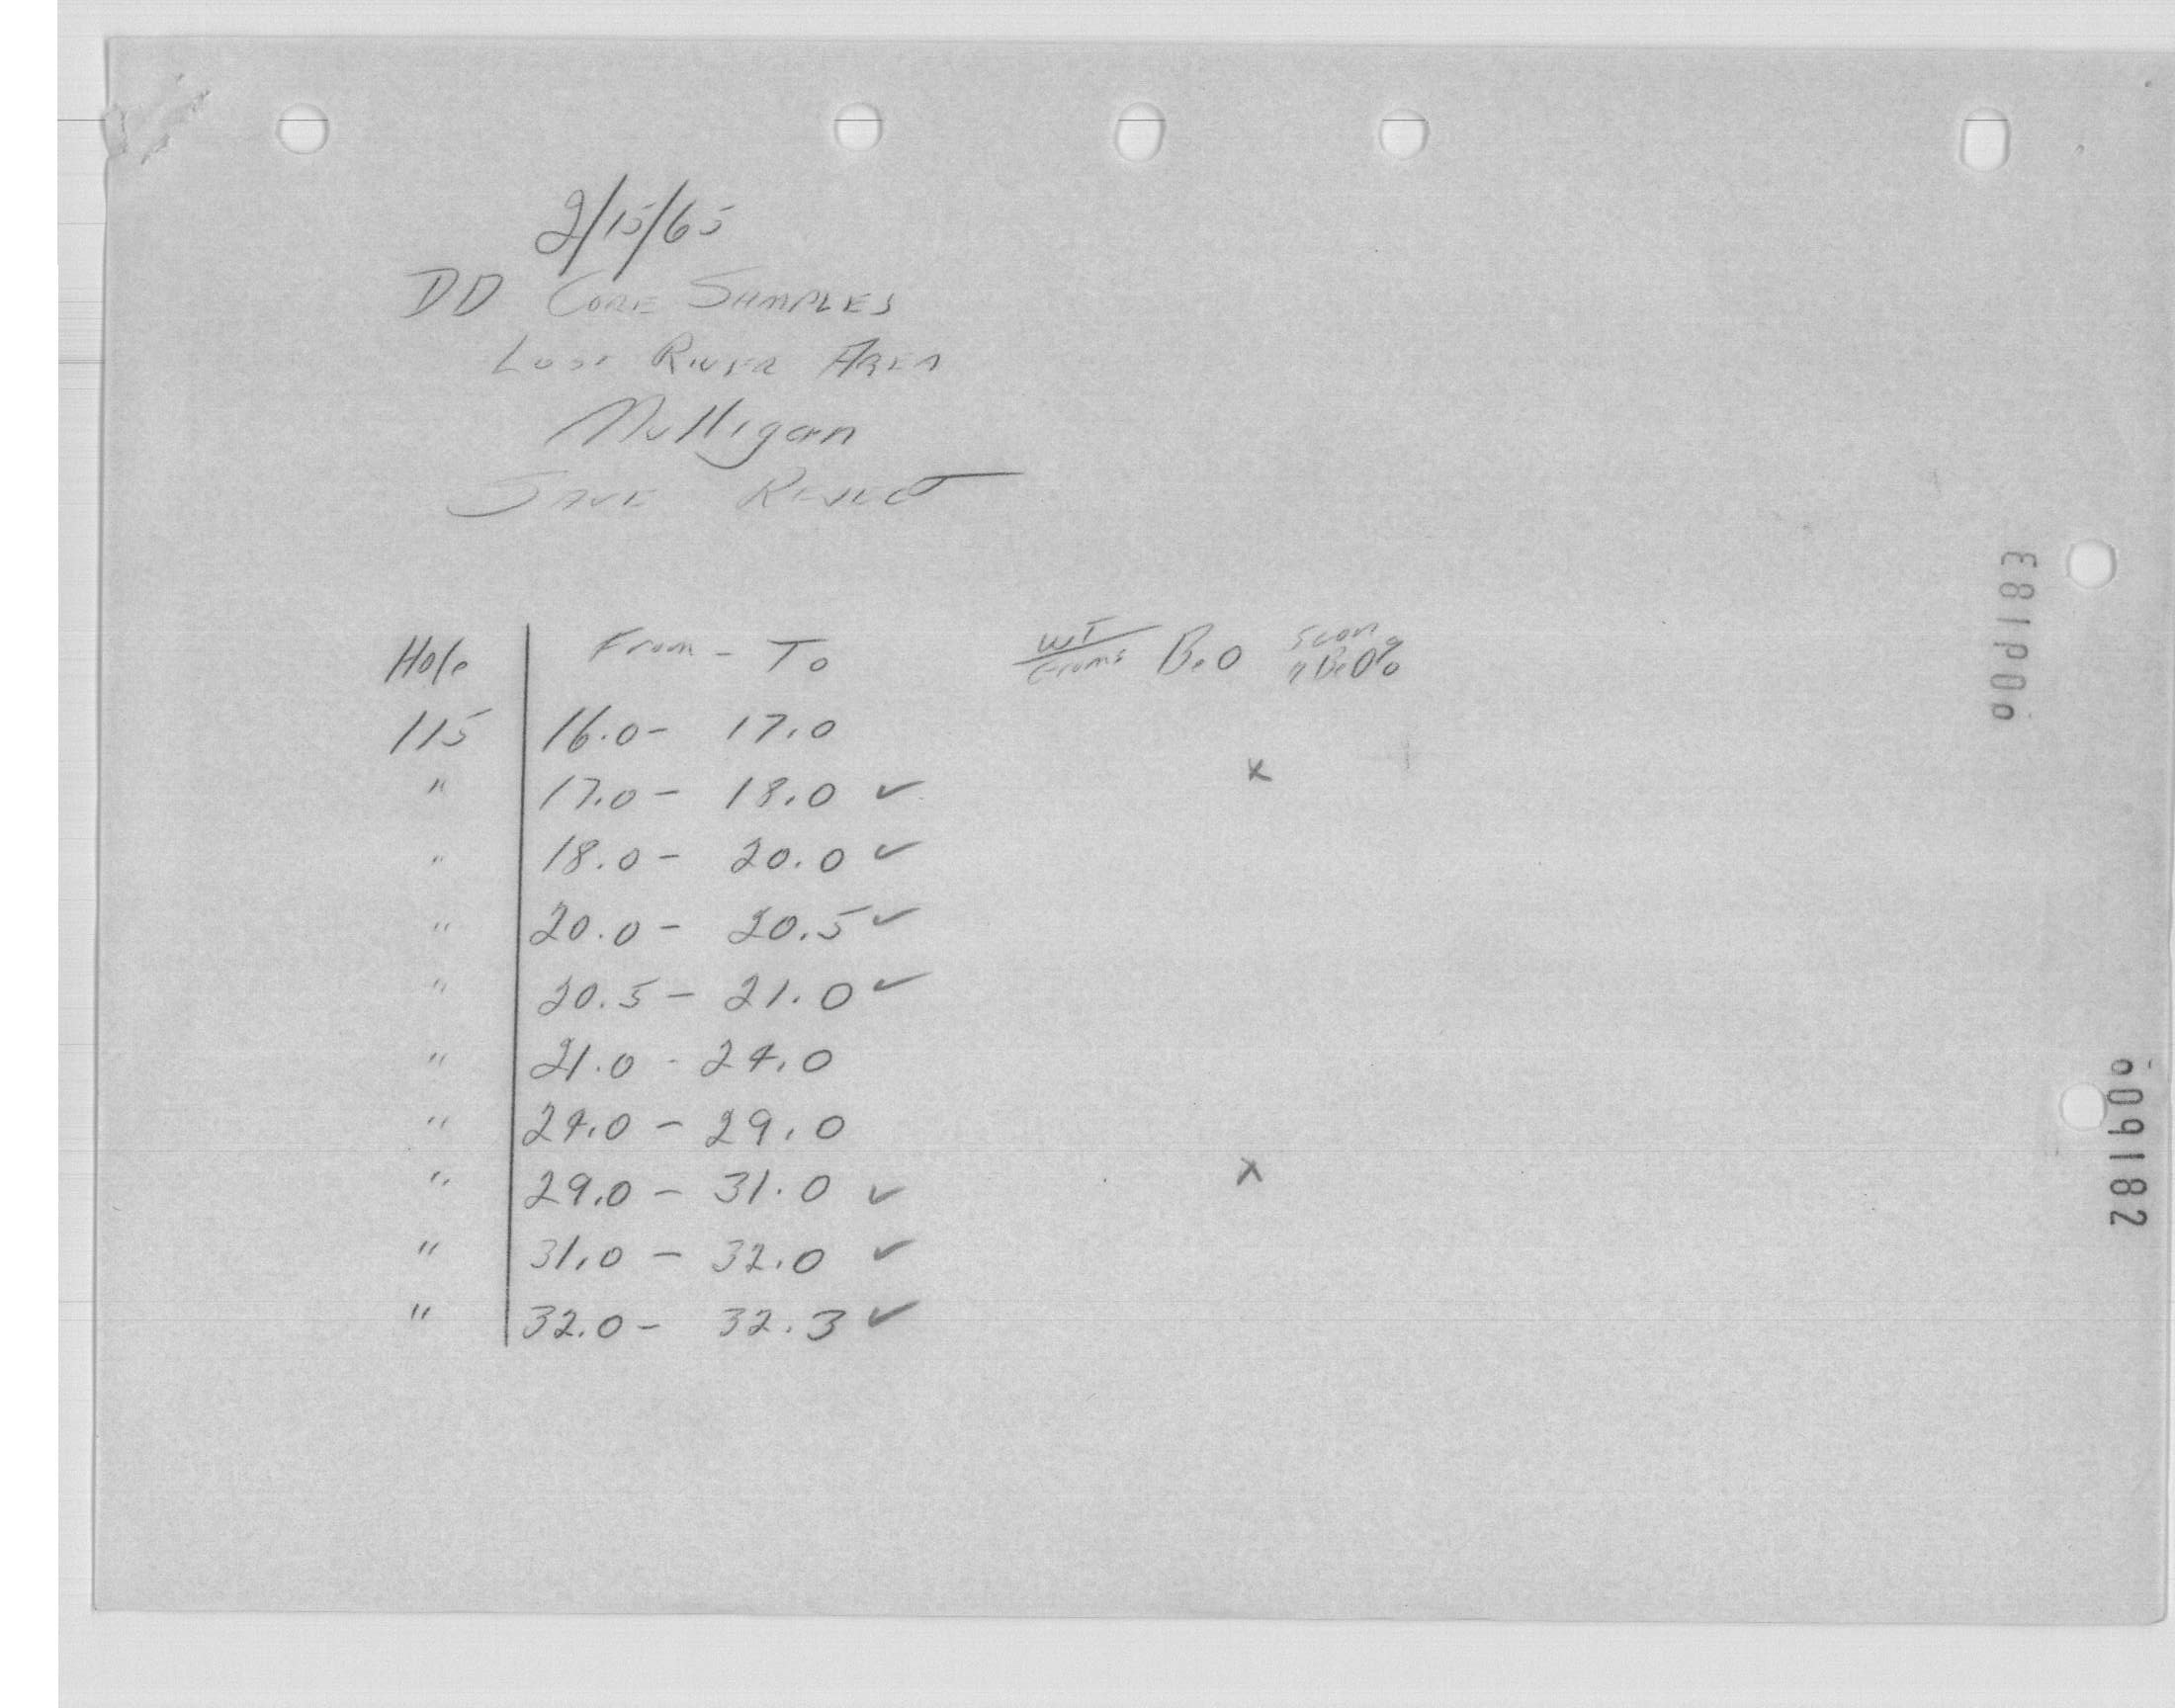 2/15/65
DD CORE SAMPLES
LOST RIVER AREA
Mulligan
SAVE REJECT
Hole From - To WT/Grams BeO Scan % BeO
115 16.0 - 17.0
" 17.0 - 18.0 ✓ x
" 18.0 - 20.0 ✓
" 20.0 - 20.5 ✓
" 20.5 - 21.0 ✓
" 21.0 - 24.0
" 24.0 - 29.0
" 29.0 - 31.0 ✓ x
" 31.0 - 32.0 ✓
" 32.0 - 32.3 ✓
009183
009182